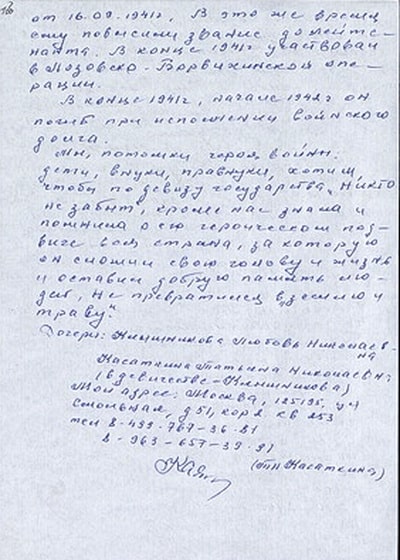 от 16.09.1941г, В это же время
ему повысили звание до лейте-
нанта. В конце 1941г участвовал
в Лозовско-Барвихинской опе-
рации.
В конце 1941г, начале 1942г он
погиб при исполнении воинского
долга.
Мы, потомки героя войны
дети, внуки, правнуки, хотим,
чтобы по девизу государства „Никто
не забыт", кроме нас знала и
помнила о его героическом под-
виге вся страна, за которую
он сложил свою голову и жизнь
и оставил добрую память лю-
дей, не превратился в „землю и
траву"
Дочери: Книшникова Любовь Николаев-
на
Касаткина Татьяна Николаевна
(в девичестве - Книшникова)
Мой адрес: Москва, 125195, ул
Смольная, д 51, кор 2 кв 253
тел 8-499-767-36-81
8-963-657-39-91
(опп Касаткина)